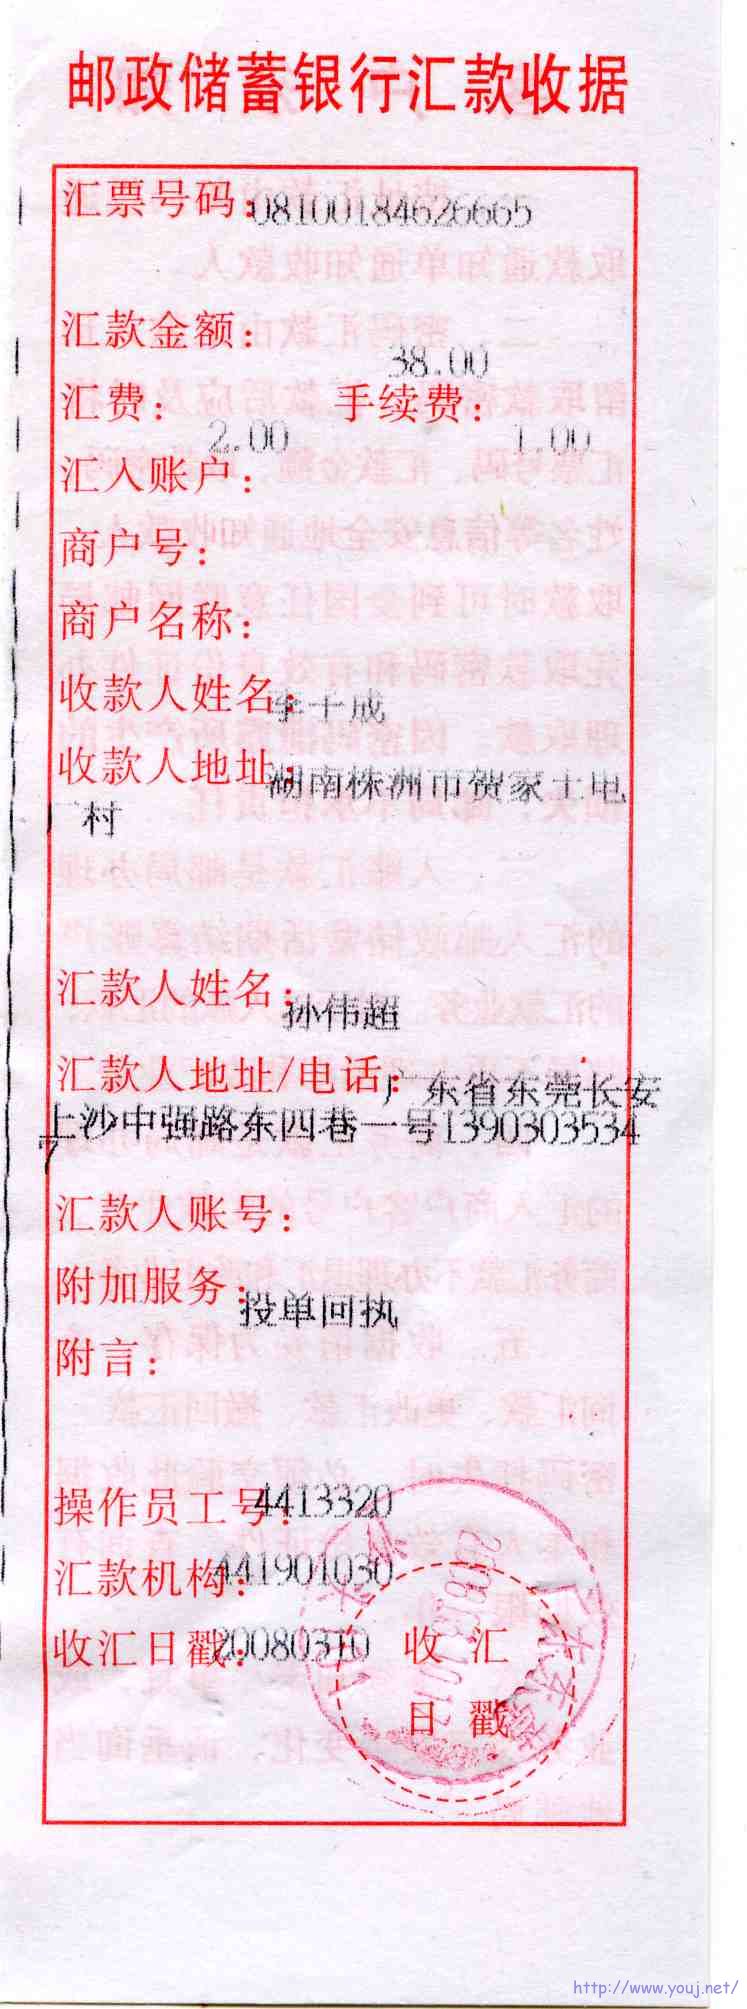 邮政储蓄银行汇款收据
汇票号码：08100184626665
汇款金额：38.00
汇费：2.00 手续费：1.00
汇入账户：
商户号：
商户名称：
收款人姓名：李千成
收款人地址：湖南株洲市贺家土电
厂村
汇款人姓名：孙伟超
汇款人地址/电话：广东省东莞长安
上沙中强路东四巷一号1390303534
7
汇款人账号：
附加服务：投单回执
附言：
操作员工号：4413320
汇款机构：441901030
收汇日戳：20080310
收 汇
日 戳
广东东莞
http://www.youj.net/